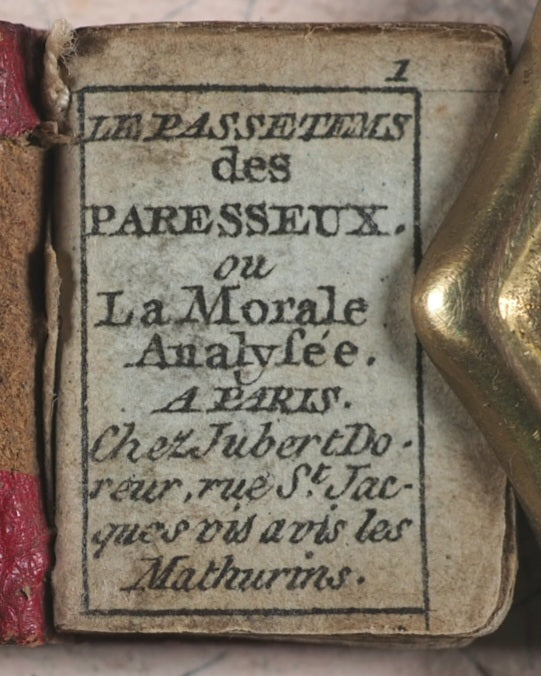 1
LE PASSETEMS
des
PARESSEUX.
ou
La Morale
Analyſée.
A PARIS.
Chez Jubert Do-
reur, rue S.t Jac-
ques vis a vis les
Mathurins.